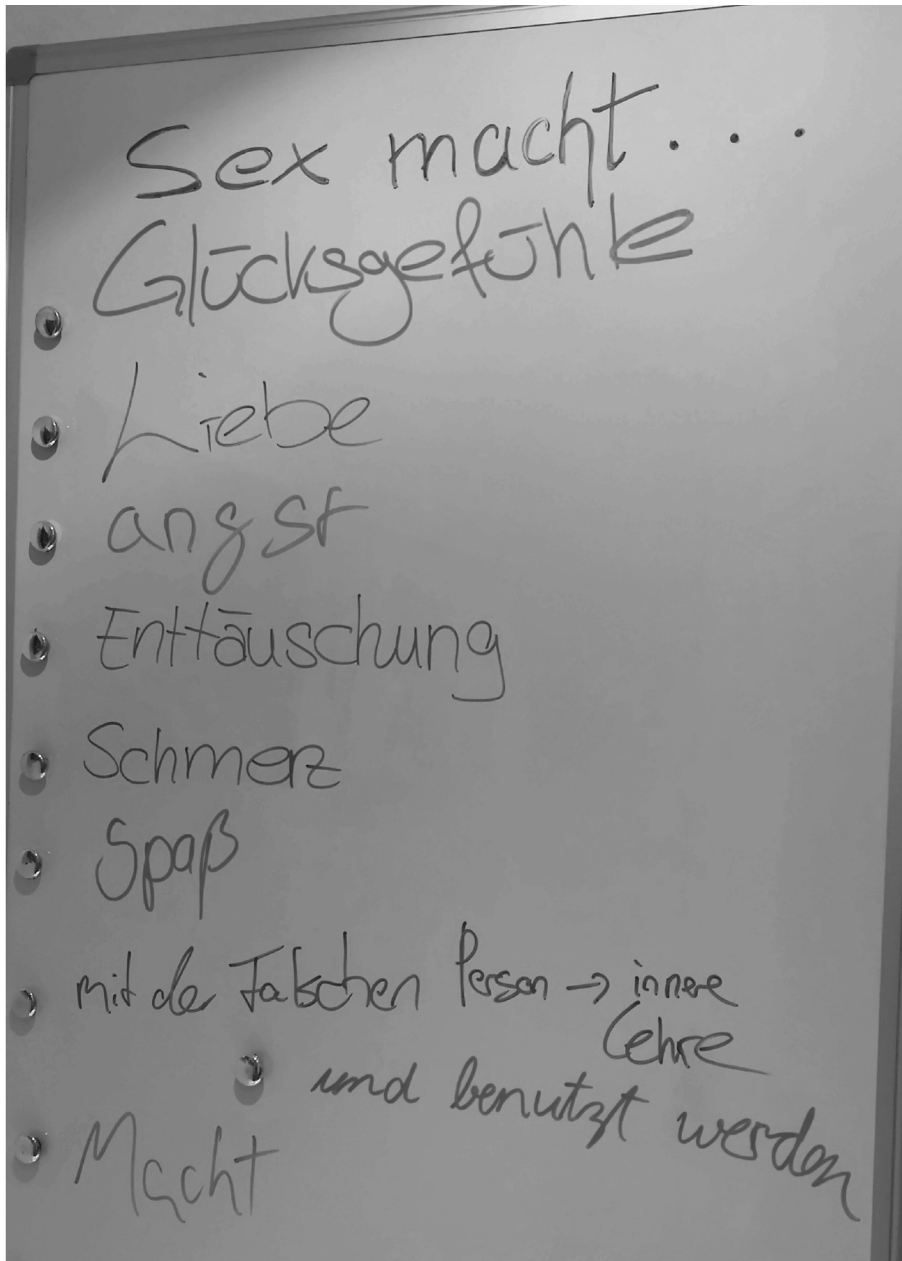 Sex macht...
Glücksgefühle
Liebe
angst
Enttäuschung
Schmerz
Spaß
mit der Falschen Person → innere
Lehre
und benutzt werden
Macht